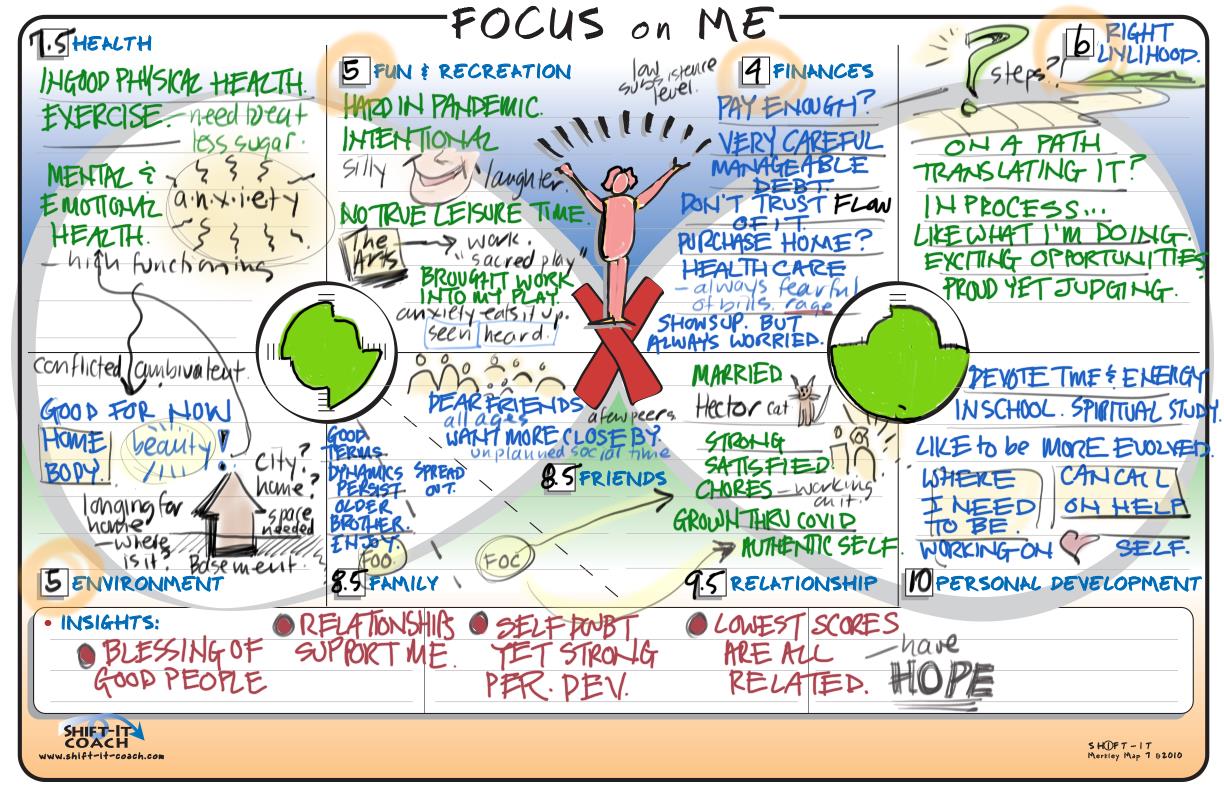 FOCUS on ME
7.5 HEALTH
IN GOOD PHYSICAL HEALTH.
EXERCISE. - need to eat
less sugar.
MENTAL &
EMOTIONAL
HEALTH.
anxiety
- high functioning
5 FUN & RECREATION
HARD IN PANDEMIC.
INTENTIONAL
silly
laughter.
NO TRUE LEISURE TIME.
The
Arts
work.
"sacred play"
BROUGHT WORK
INTO MY PLAY.
anxiety eats it up.
seen heard.
low
subsistence
level.
4 FINANCES
PAY ENOUGH?
VERY CAREFUL
MANAGEABLE
DEBT.
DON'T TRUST FLOW
OF IT.
PURCHASE HOME?
HEALTH CARE
- always fearful
of bills. rage
SHOWS UP. BUT
ALWAYS WORRIED.
?
steps?!
6 RIGHT
LIVLIHOOD.
ON A PATH
TRANSLATING IT?
IN PROCESS...
LIKE WHAT I'M DOING.
EXCITING OPPORTUNITIES
PROUD YET JUDGING.
conflicted/ambivalent.
GOOD FOR NOW
HOME
BODY.
beauty!
City?
home?
space
needed
longing for
home
- where
is it?
Basement.
5 ENVIRONMENT
GOOD
TERMS.
DYNAMICS
PERSIST.
OLDER
BROTHER.
ENJOY.
SPREAD
OUT.
FOO
8.5 FAMILY
DEAR FRIENDS
all ages
a few peers
WANT MORE CLOSE BY.
unplanned social time
8.5 FRIENDS
FOC
MARRIED
Hector cat
STRONG
SATISFIED
CHORES - working
on it.
GROWN THRU COVID
AUTHENTIC SELF
9.5 RELATIONSHIP
DEVOTE TIME & ENERGY
IN SCHOOL. SPIRITUAL STUDY.
LIKE to be MORE EVOLVED.
WHERE
I NEED
TO BE.
CAN CALL
ON HELP
WORKING ON SELF.
10 PERSONAL DEVELOPMENT
• INSIGHTS:
BLESSING OF
GOOD PEOPLE
RELATIONSHIPS
SUPPORT ME.
SELF DOUBT
YET STRONG
PER. DEV.
LOWEST SCORES
ARE ALL
RELATED.
- have
HOPE
SHIFT-IT
COACH
www.shift-it-coach.com
SHIFT-IT
Merkley Map 7 ©2010